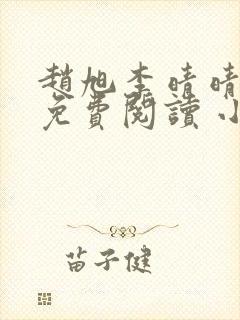 趙旭李晴晴
免費閱讀小
苗子健